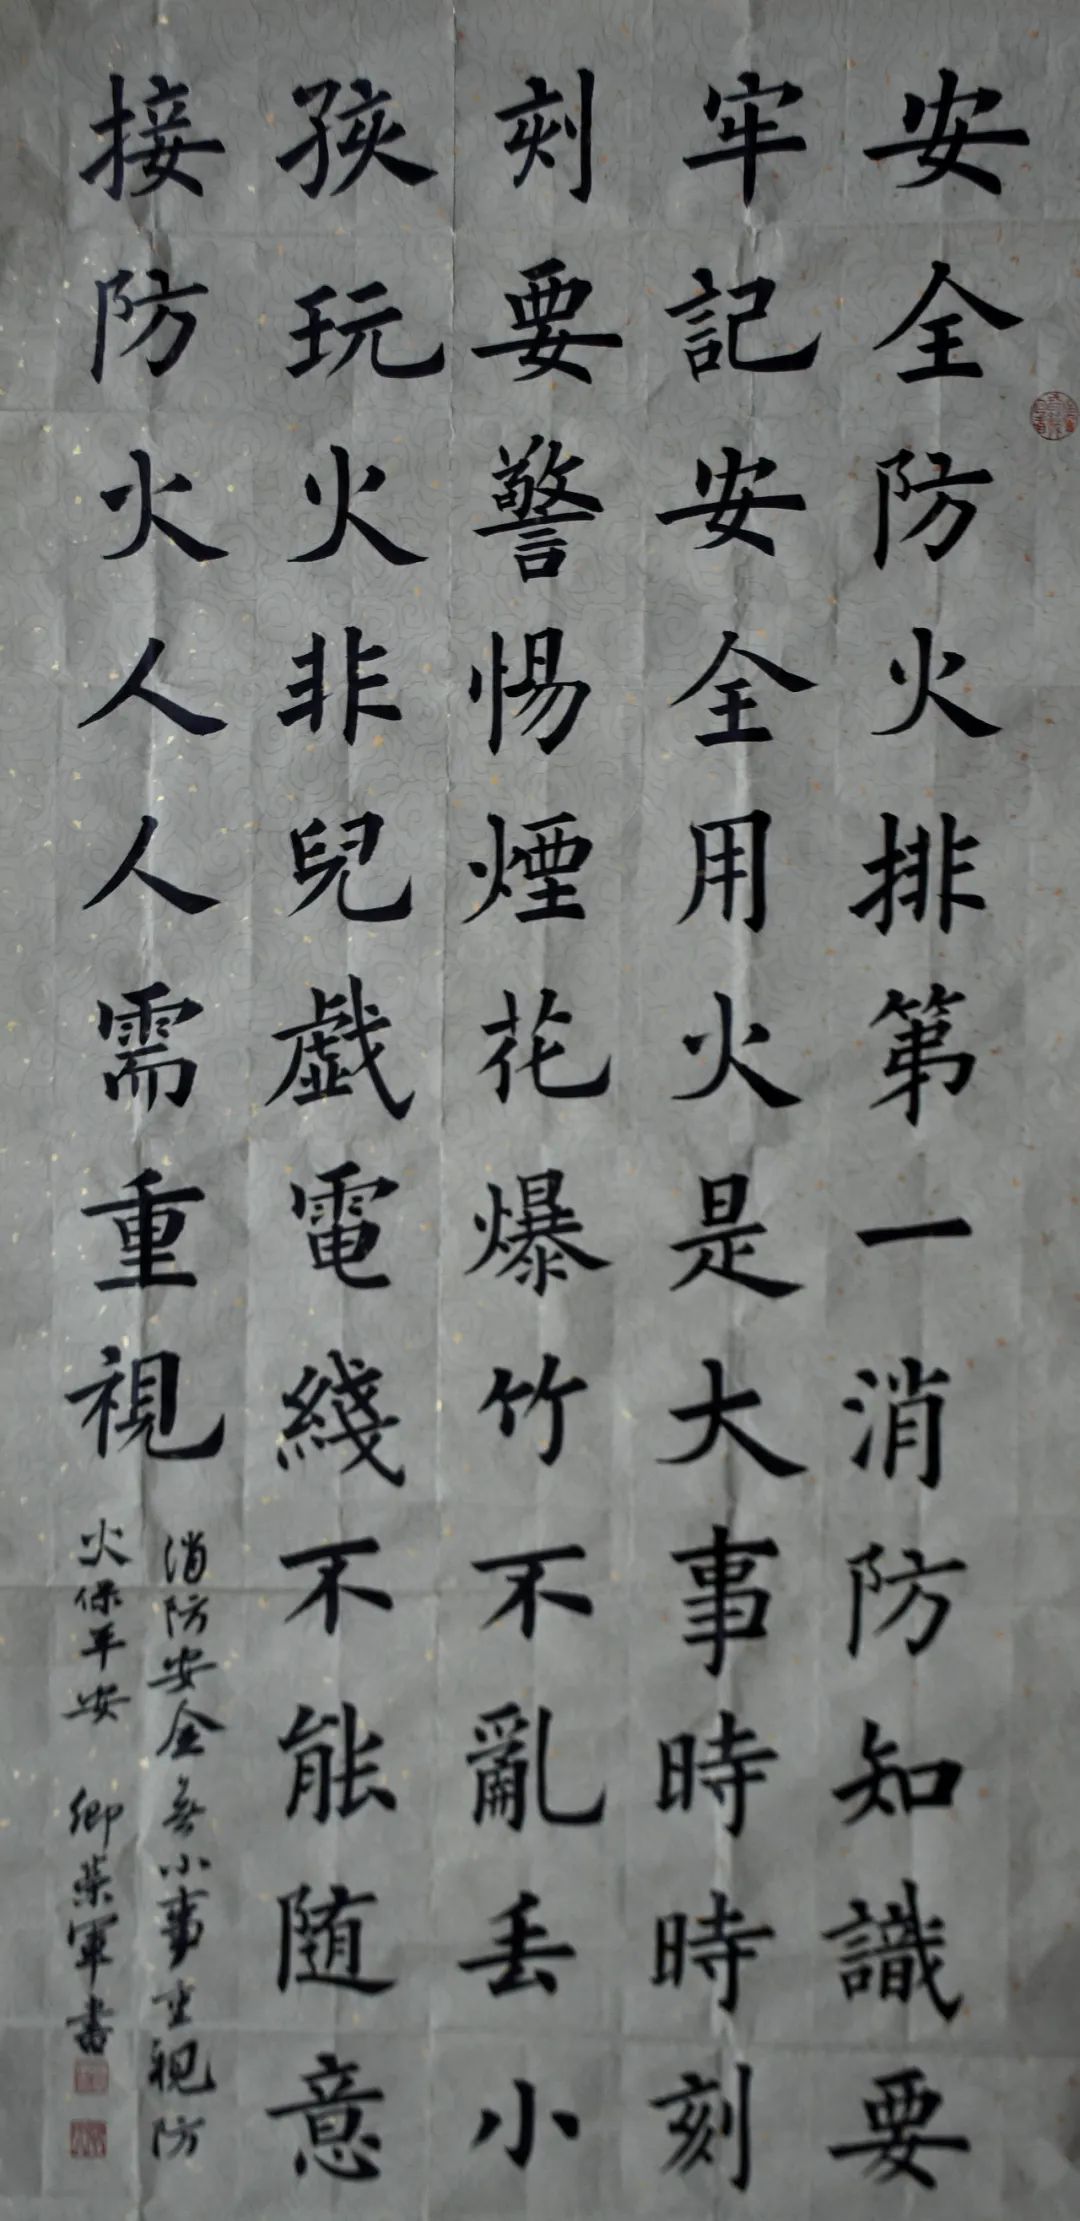 安全防火排第一消防知識要
牢記安全用火是大事時時刻
刻要警惕煙花爆竹不亂丢小
孩玩火非兒戯電綫不能随意
接防火人人需重視
消防安全无小事重視防
火保平安 卿荣軍書